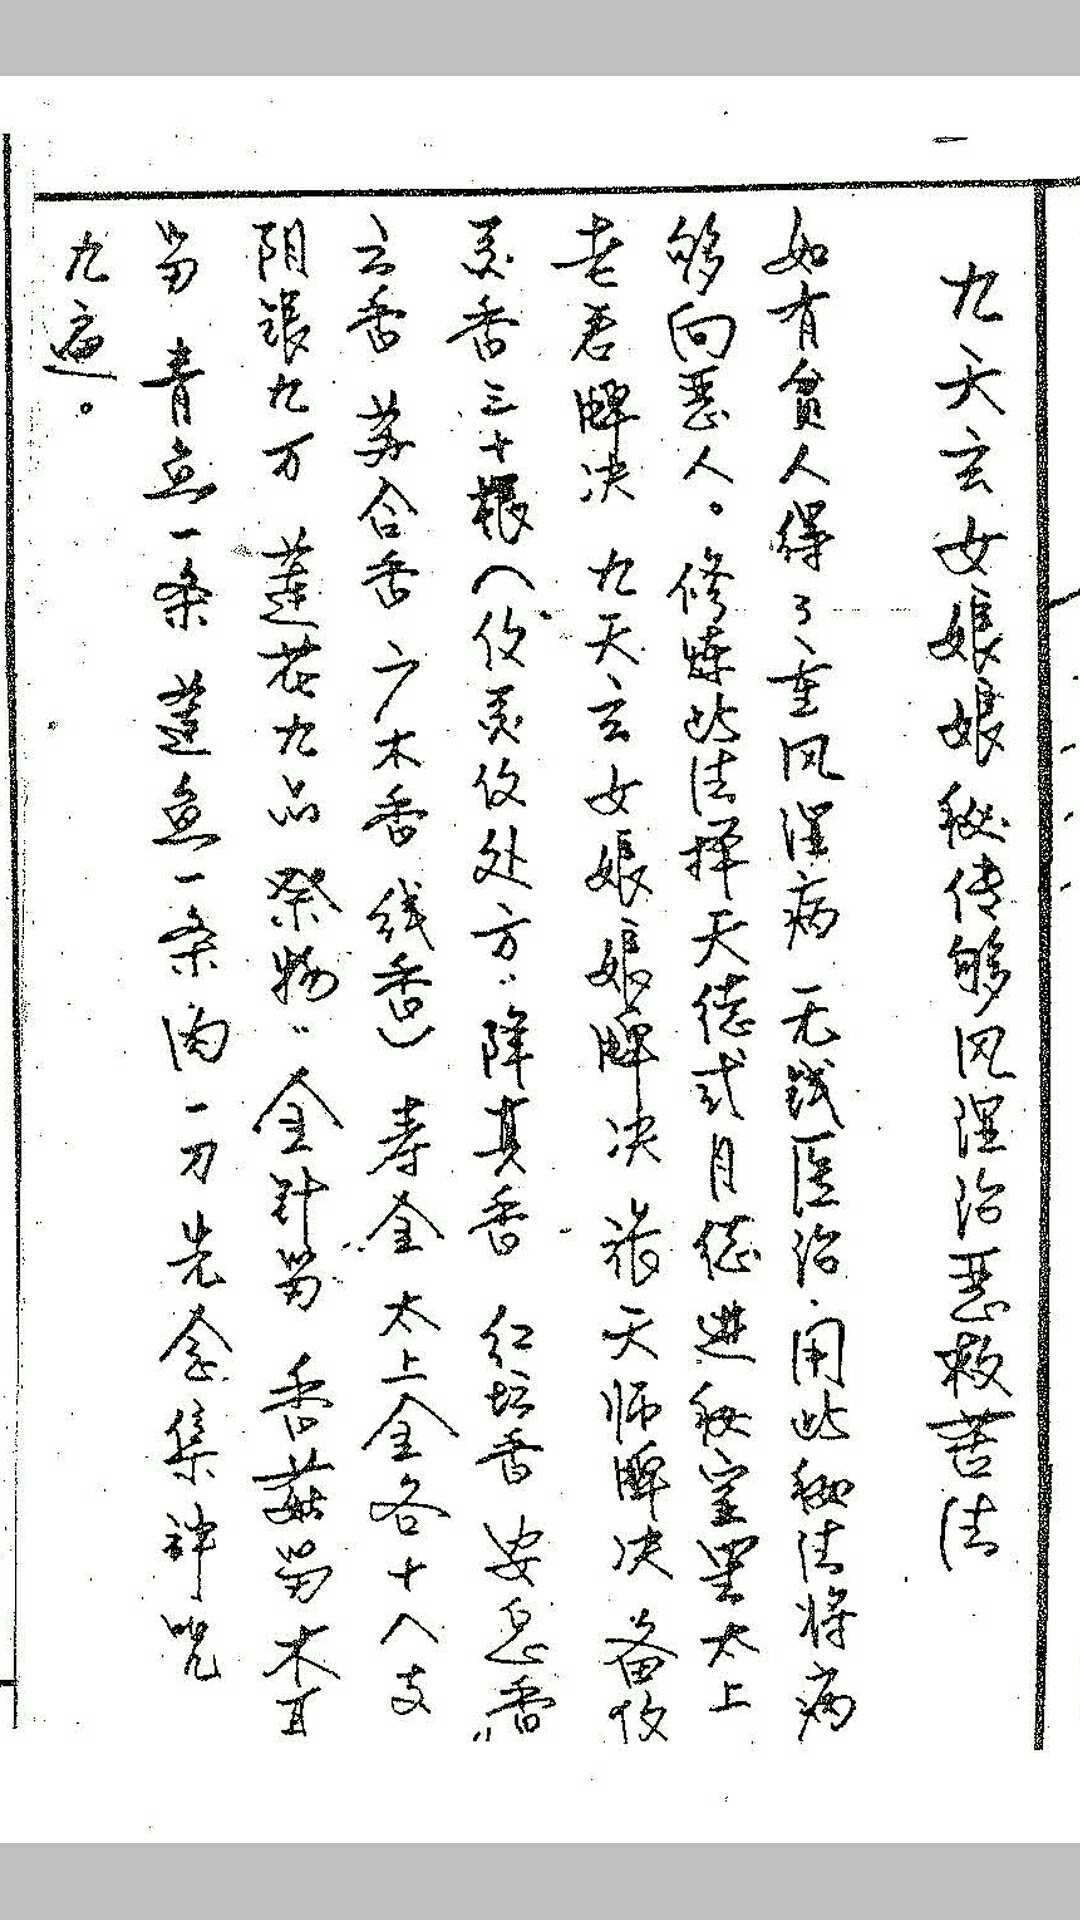 一
九天玄女娘娘秘传够风湿治恶救苦法
如有贫人得了重风湿病 无钱医治 用此秘法将病
够向恶人。修炼此法择天德或月德进秘室罡太上
老君牌决 九天玄女娘娘牌决 张天师牌决 备
灵香三十根 灵 处方: 降真香 红坛香 安息香
云香 苏合香 广木香 线香） 寿金 太上金各十八支
阴银九万 莲花九品 祭物: 金针 香菇 木耳
青鱼一条 鱼一条肉一刀先念集神咒
九遍。